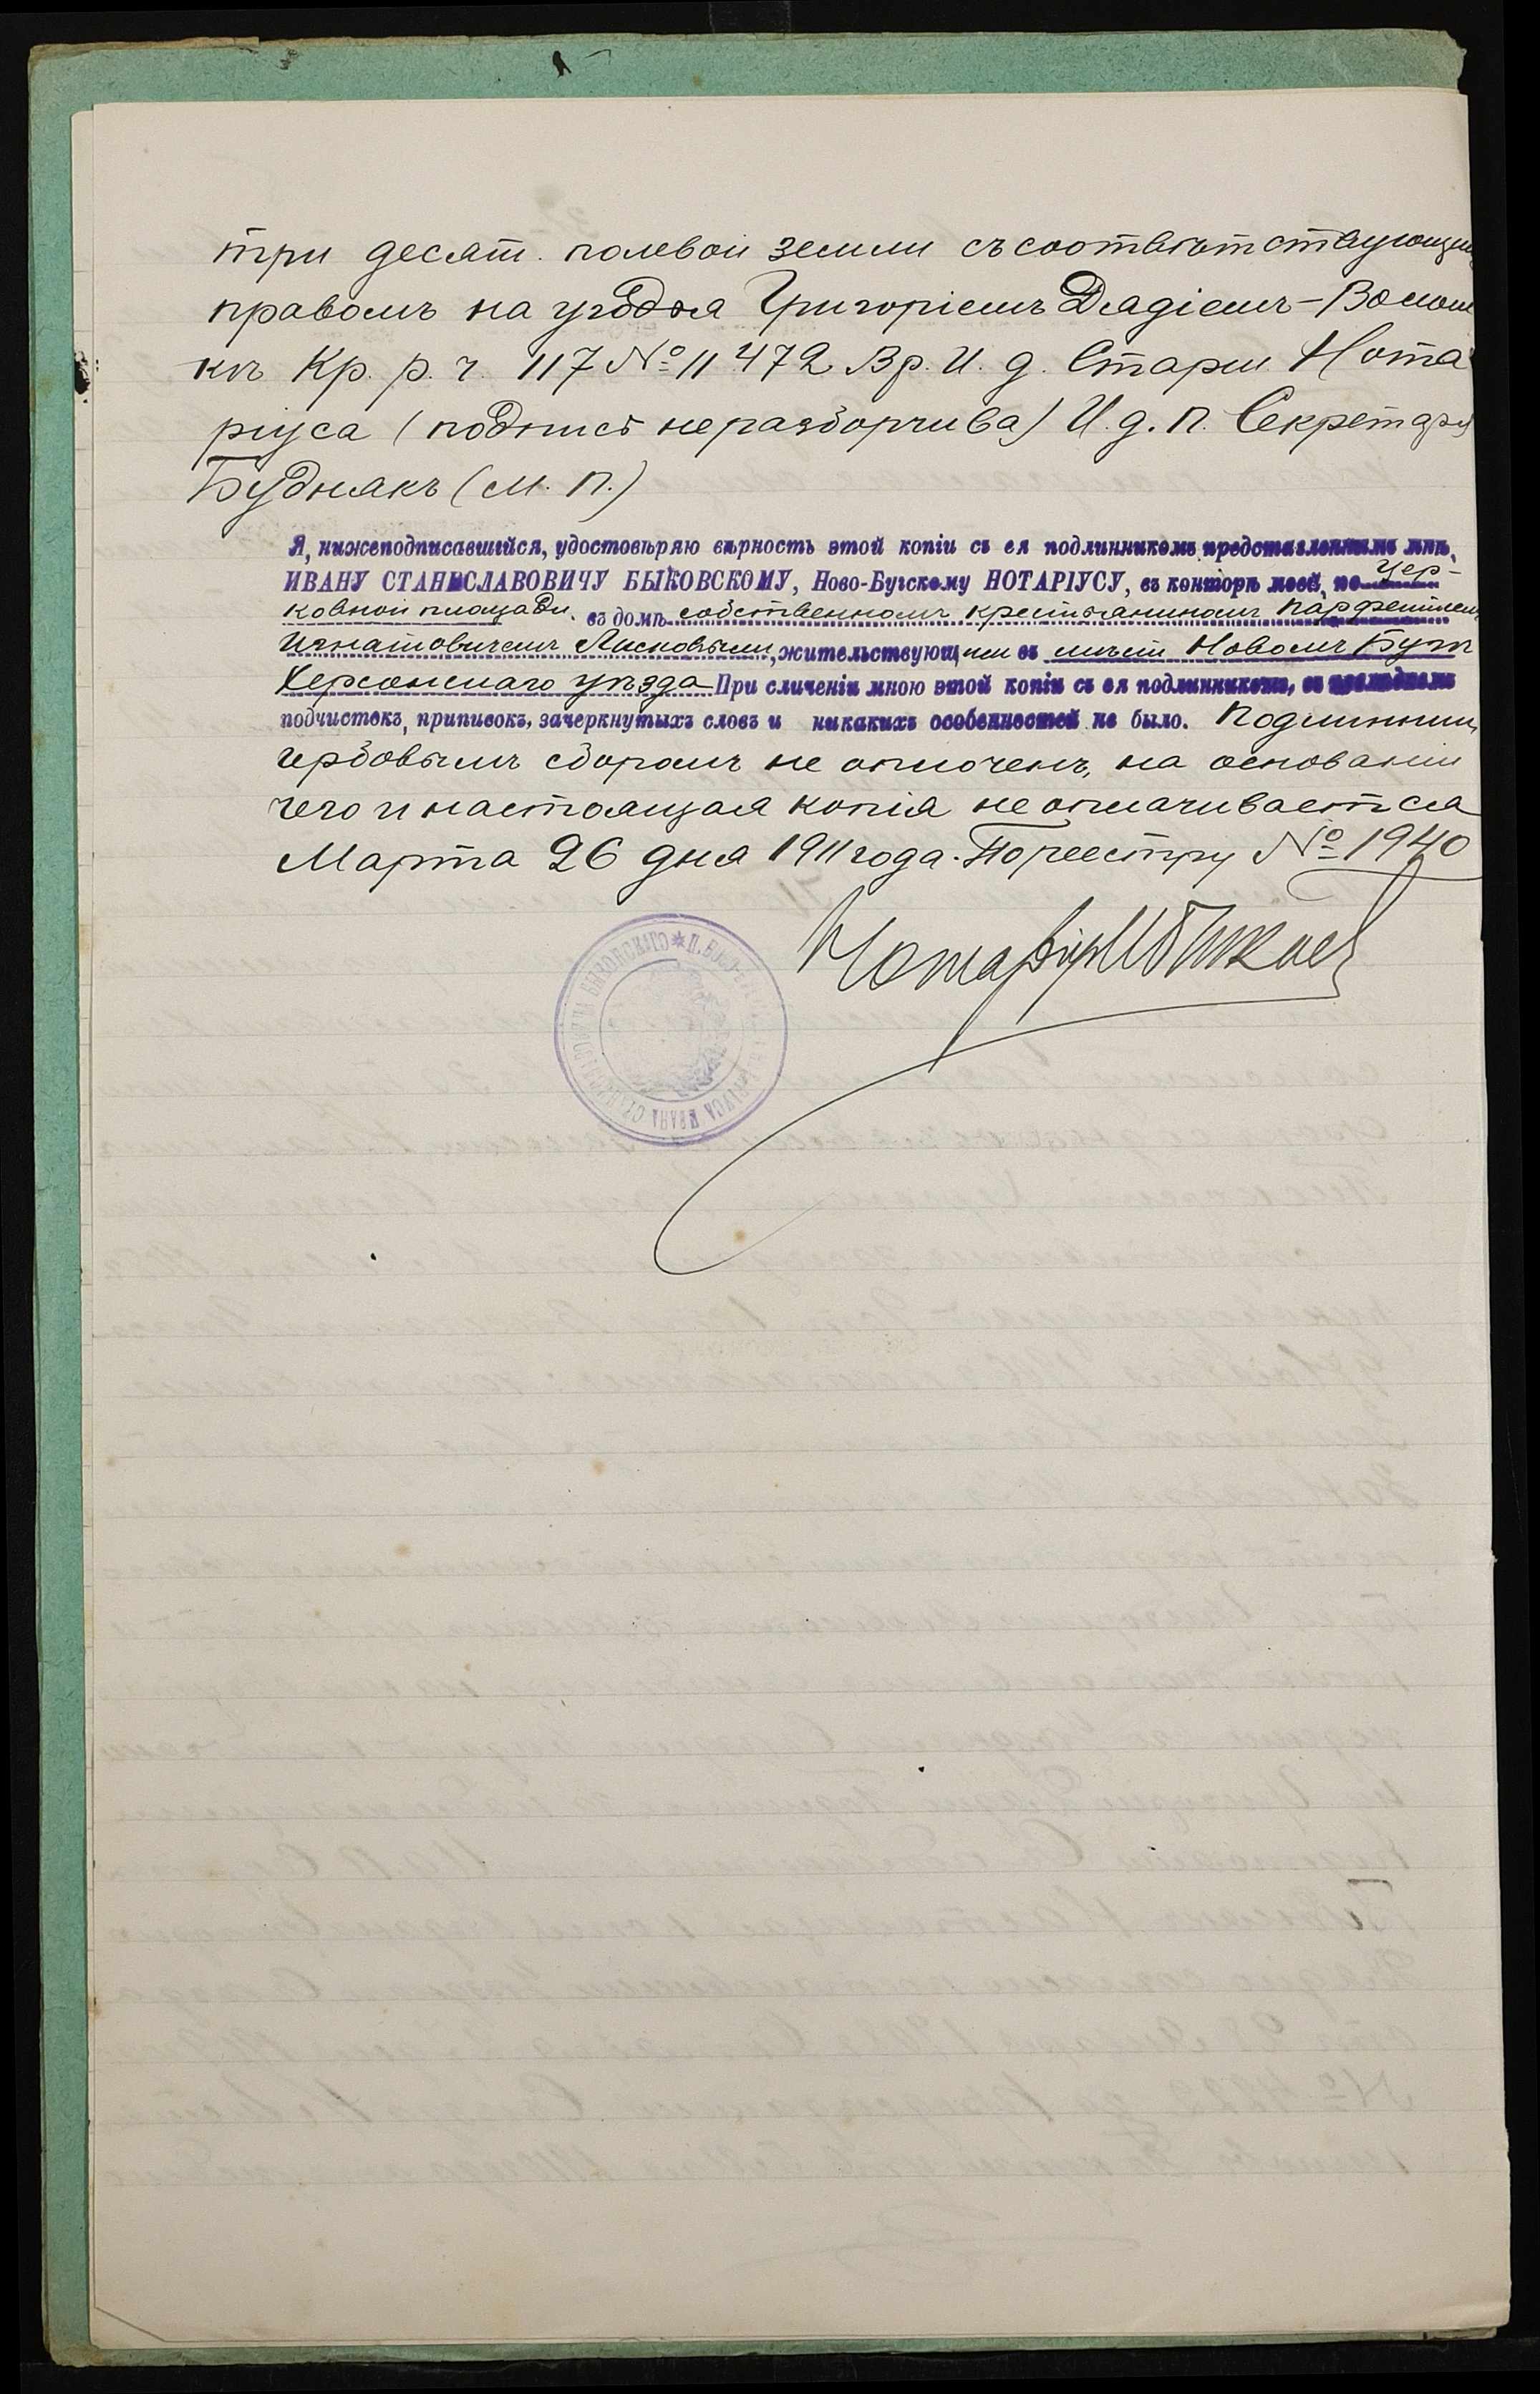 три десят. полевой земли съ соотвѣтствующим
правомъ на угодья Григоріемъ Дядіемъ-Волош
къ Кр. р. ч. 117 № 11472 Вр. И. д. Старш. Нота
ріуса (подпись неразборчива) И. д. п. Секретаря
Буднякъ (М. П.)
Я, нижеподписавшійся, удостовѣряю вѣрность этой копіи съ ея подлинникомъ представленнымъ мнѣ,
ИВАНУ СТАНИСЛАВОВИЧУ БЫКОВСКОМУ, Ново-Бугскому НОТАРІУСУ, въ конторѣ моей, по Цер-
ковной площади, въ домѣ собственномъ крестьяниномъ Парфентіем
Игнатовичемъ Лисковымъ, жительствующимъ въ мѣст. Новомъ Бугѣ
Херсонскаго уѣзда При сличеніи мною этой копіи съ ея подлинникомъ, въ послѣднемъ
подчистокъ, приписокъ, зачеркнутыхъ словъ и никакихъ особенностей не было. Подлинник
гербовымъ сборомъ не оплоченъ, на основаніи
чего и настоящая копія не оплачивается
Марта 26 дня 1911 года. По реестру № 1940
Нотаріус
НОТАРІУСА ИВАНА СТАНИСЛАВОВИЧА БЫКОВСКАГО